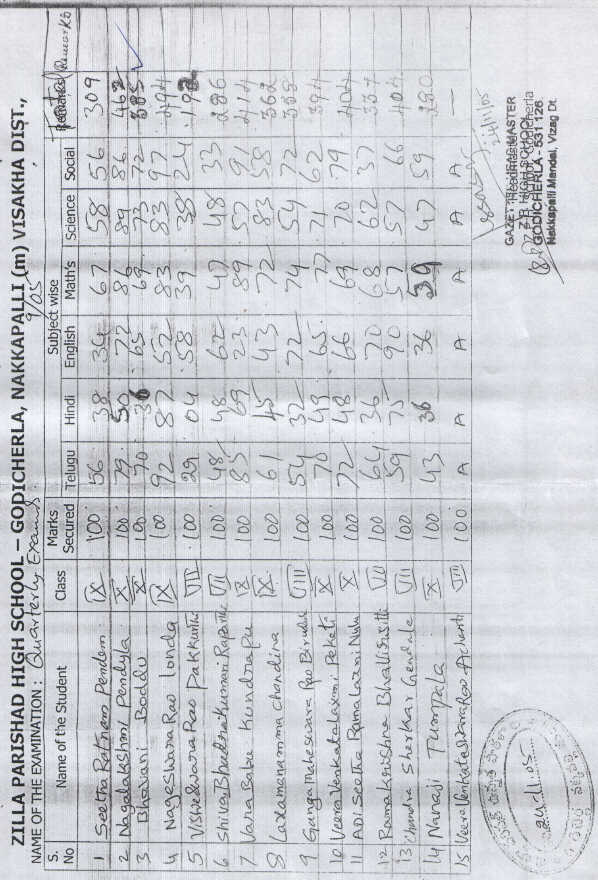 ZILLA PARISHAD HIGH SCHOOL – GODICHERLA, NAKKAPALLI (m) VISAKHA DIST.,
NAME OF THE EXAMINATION: Quarterly Exams. 9/05
S. No Name of the Student Class Marks Secured Subject wise Telugu Hindi English Math's Science Social Total Remarks
1 Seetha Ratnam Pendem IX 100 56 38 34 67 58 56 309
2 Nagalakshmi Pendyla X 100 79 50 72 86 89 86 462
3 Bhavani Boddu X 100 70 36 65 69 73 72 385
4 Nageswara Rao Londa IX 100 92 87 52 83 83 97 494
5 Visweswara Rao Pakkurthi VIII 100 29 04 58 39 38 24 192
6 Shiva Bhadra Kumari VII 100 48 48 62 47 48 33 286
7 Vara Babu Kundrapu IX 100 85 69 23 89 57 91 414
8 Laxamanamma Chandina IX 100 61 45 43 72 83 58 362
9 Ganga Maheswara Rao VIII 100 54 32 72 74 54 72 358
10 Veera Venkatalaxmi Peketi X 100 70 49 65 77 71 62 394
11 Adi Seetha Ramalaxmi X 100 72 48 66 69 70 79 404
12 Ramakrishna VII 100 64 36 70 68 62 37 337
13 Chandra Sherkar Gendale VIII 100 59 75 90 57 57 66 404
14 Nanaji Tumpala X 100 43 36 36 59 47 59 280
15 Veera Venkateswara Rao Pichanti VIII 100 A A A A A A —
24/11/05
GAZETTED HEADMASTER
Z.P. HIGH SCHOOL
GODICHERLA - 531 126
Nakkapalli Mandal, Vizag Dt.
24.11.05